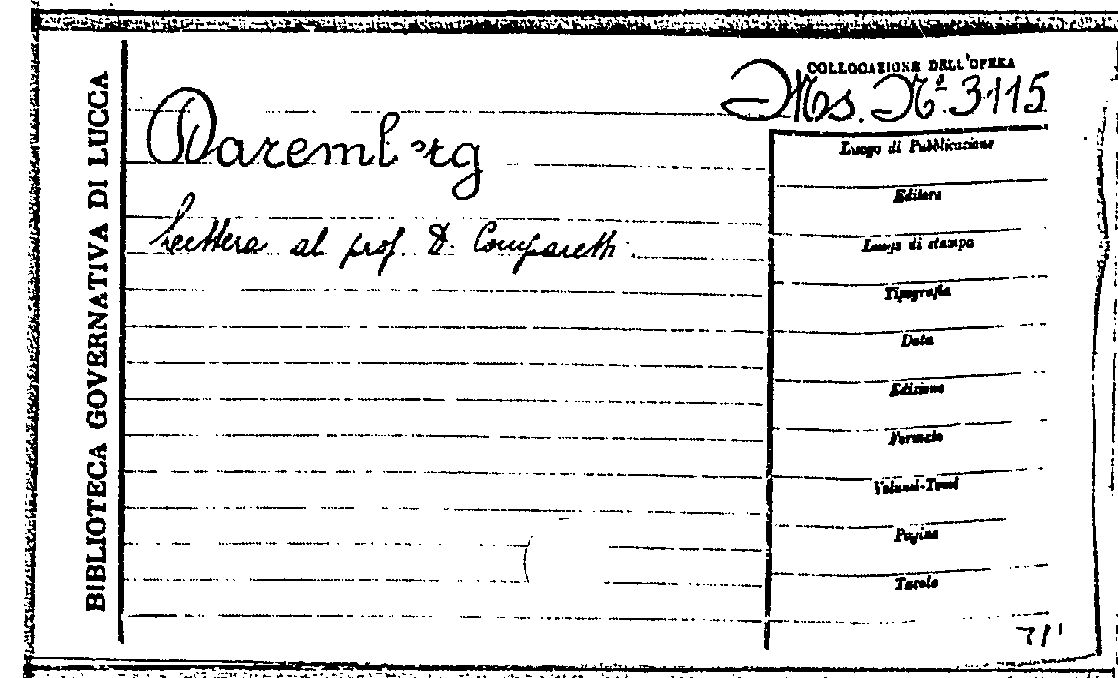 BIBLIOTECA GOVERNATIVA DI LUCCA
COLLOCAZIONE DELL'OPERA
Ms. N.º 3115
Daremberg
Lettera al prof. D. Comparetti.
Luogo di Pubblicazione
Editore
Luogo di stampa
Tipografia
Data
Edizione
Formato
Volumi-Tomi
Pagine
Tavole